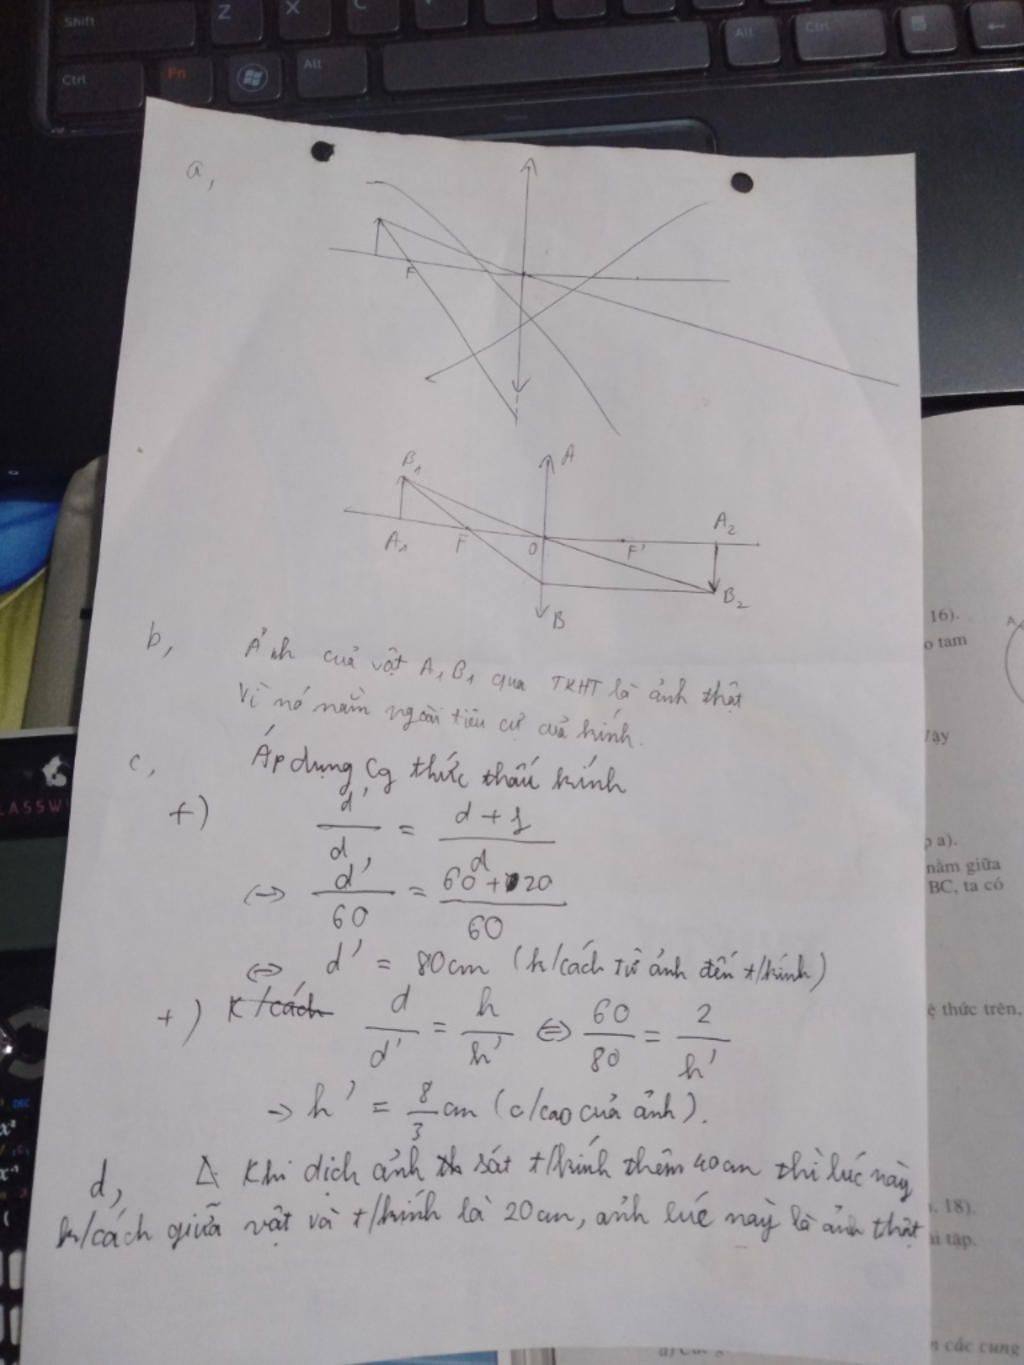 Shift
Z
X
C
Alt
Ctrl
Ctrl
Fn
Alt
a,
F
B₁
A
A₁
F
O
F'
A₂
B₂
B
b, Ảnh cuả vật A₁B₁ qua TKHT là ảnh thật
Vì nó nằm ngoài tiêu cự cuả kính.
c, Áp dụng Cg thức thấu kính
+) d'/d = d + f/d
<=> d'/60 = 60 + 20/60
<=> d' = 80cm (k/cách từ ảnh đến t/kính)
+) K/cách d/d' = h/h' <=> 60/80 = 2/h'
-> h' = 8/3 cm (c/cao cuả ảnh).
d, Khi dịch ảnh sát t/kính thêm 40cm thì lúc này
k/cách giữa vật và t/kính là 20cm, ảnh lúc này là ảnh thật
16).
o tam
A
này
a).
nằm giữa
BC, ta có
ệ thức trên,
18).
ài tập.
n các cung
CLASSW
DEC
x²